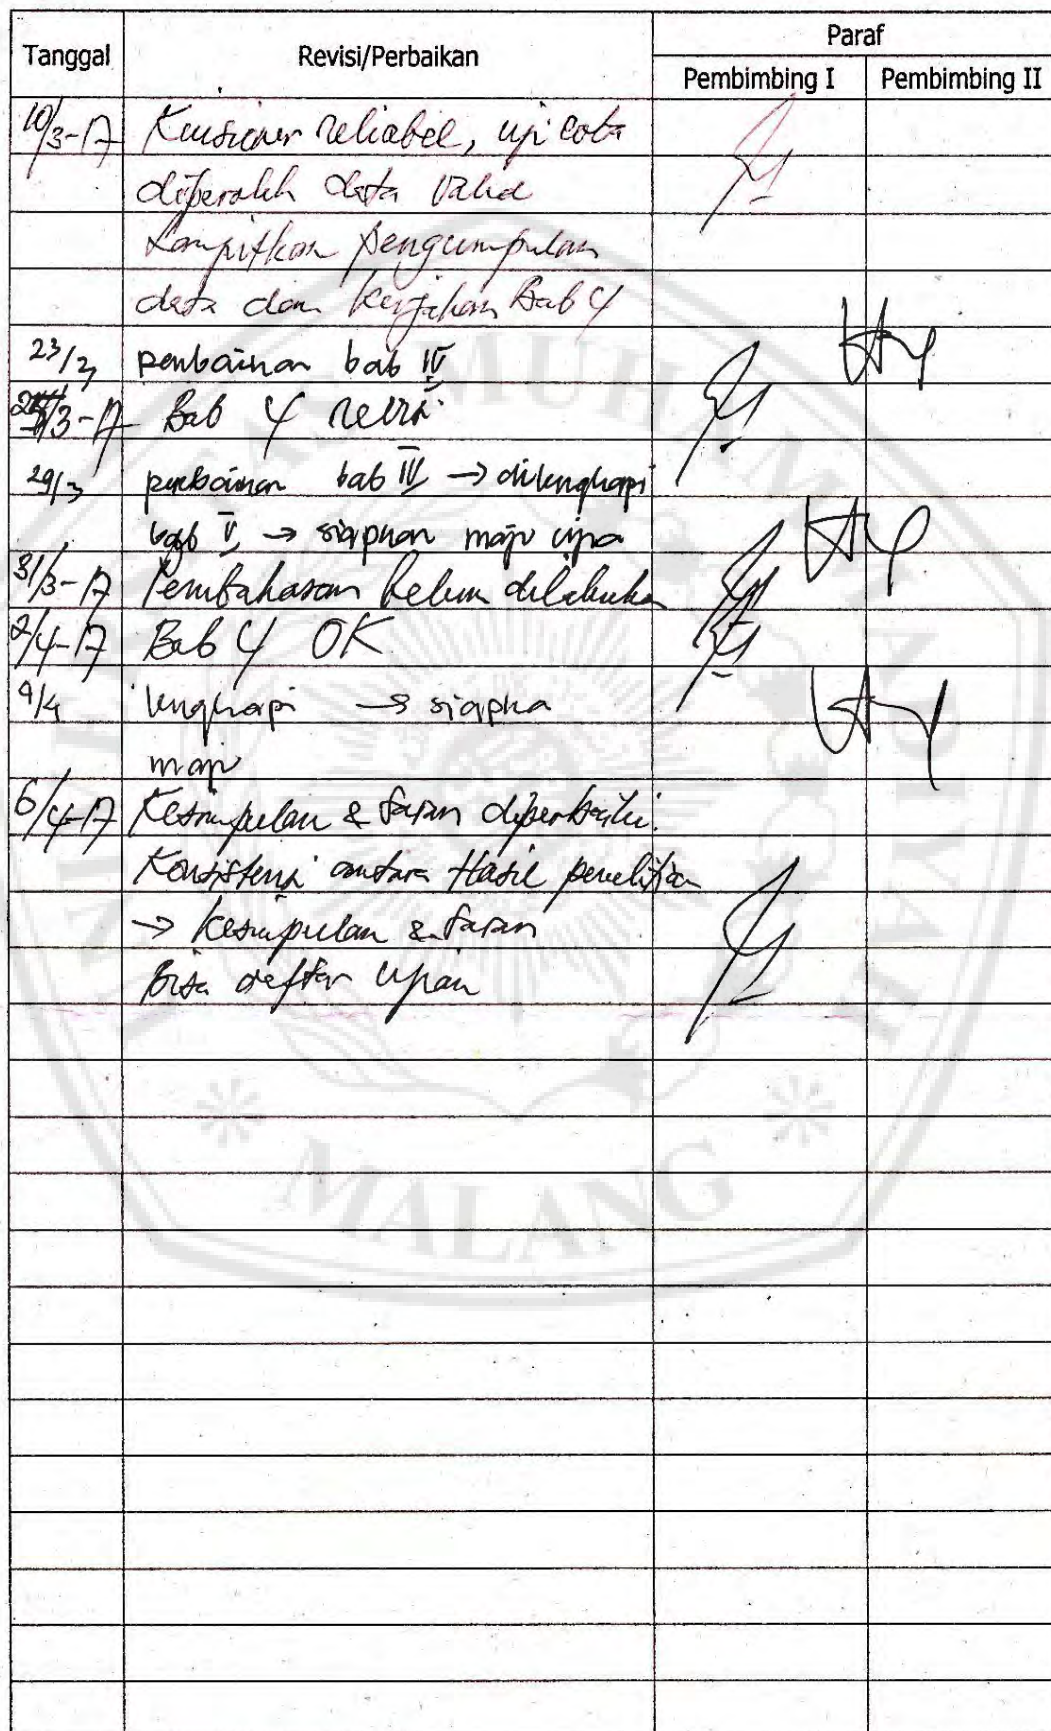 Tanggal Revisi/Perbaikan Paraf
Pembimbing I Pembimbing II
10/3-17 Kuisioner reliabel, uji coba
diperoleh data valid
Lampirkan pengumpulan
data dan kerjakan Bab 4
23/3 perbaikan bab IV
/3-17 Bab 4 revisi
29/3 perbaikan bab IV → dilengkapi
bab V → siapkan maju ujian
31/3-17 Pembahasan belum dilakukan
2/4-17 Bab 4 OK
4/4 lengkapi → siapkan
maju
6/4-17 Kesimpulan & saran diperbaiki.
Konsistensi antara Hasil penelitian
→ kesimpulan & saran
Bisa daftar ujian
UNIVERSITAS MUHAMMADIYAH
MALANG